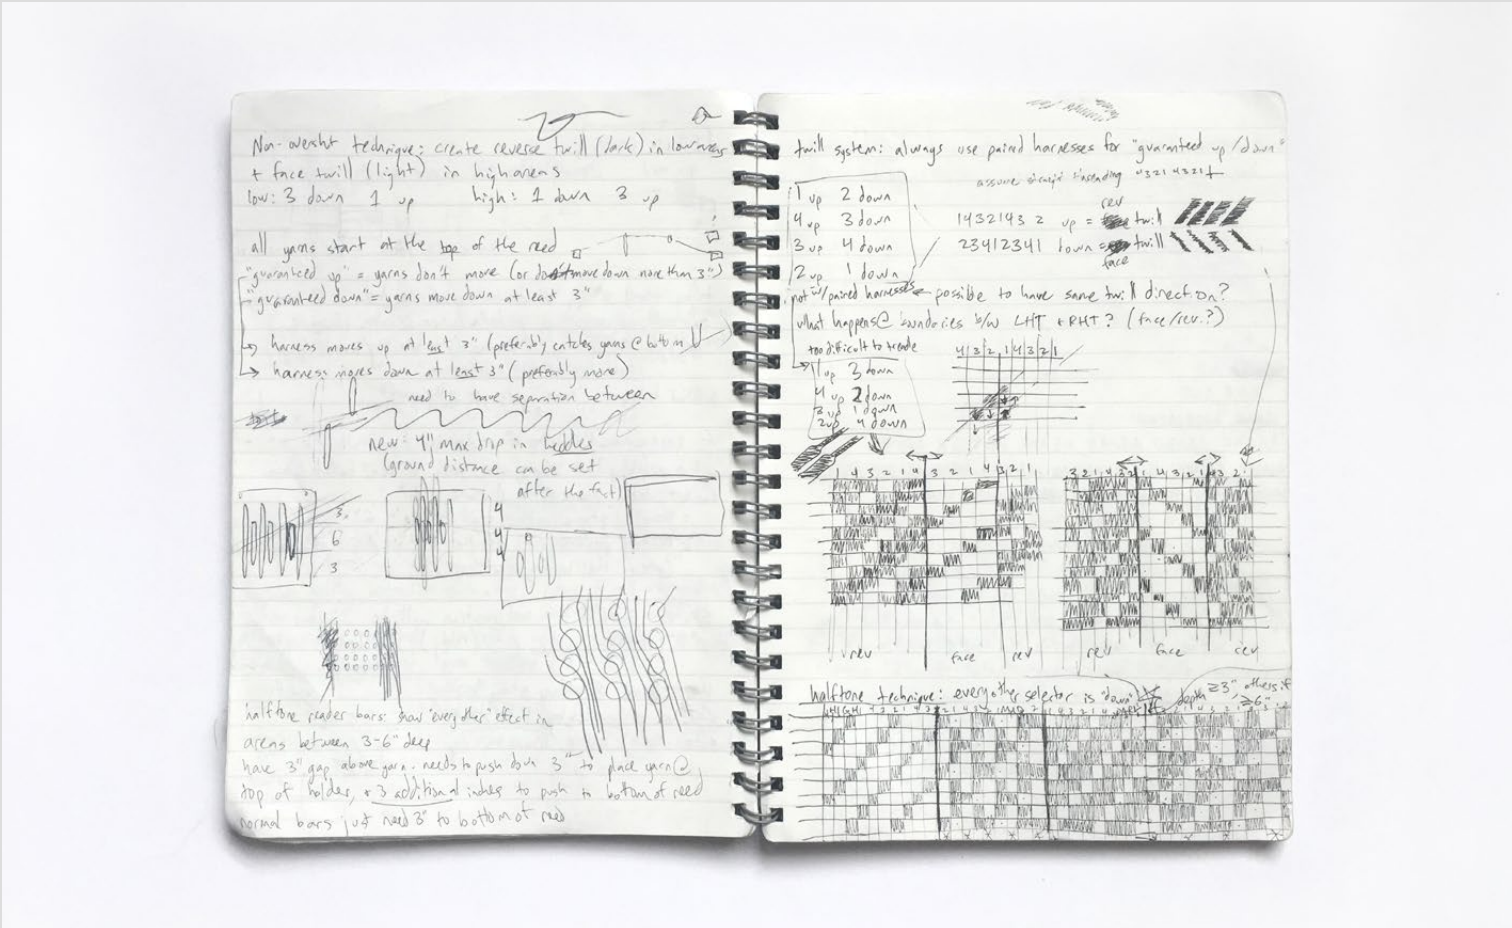 Non-overshot technique: create reverse twill (dark) in low areas
+ face twill (light) in high areas
low: 3 down 1 up high: 1 down 3 up
all yarns start at the top of the reed
"guaranteed up" = yarns don't move (or don't move down more than 3")
"guaranteed down" = yarns move down at least 3"
→ harness moves up at least 3" (preferably catches yarns @ bottom
→ harness moves down at least 3" (preferably more)
need to have separation between
new: 4" max drop in heddles
(ground distance can be set
after the fact)
3
6
3
4
4
4
halftone reader bars: show "every other" effect in
areas between 3-6" deep
have 3" gap above yarn. needs to push down 3" to place yarn @
top of holder, + 3 additional inches to push to bottom of reed
normal bars just need 3" to bottom of reed
twill system: always use paired harnesses for "guaranteed up/down"
assume straight 43214321
1 up 2 down
4 up 3 down
3 up 4 down
2 up 1 down
rev
1432143 2 up = twill
23412341 down = twill
face
not w/paired harnesses ← possible to have same twill direction?
what happens @ boundaries b/w LHT + RHT? (face/rev.?)
too difficult to treadle
1 up 3 down
4 up 2 down
3 up 1 down
2 up 4 down
4 3 2 1 4 3 2 1
1 4 3 2 1 4 3 2 1 4 3 2 1
rev face rev
rev face rev
halftone technique: every other selector is "down" depth ≥3", others if
≥6"